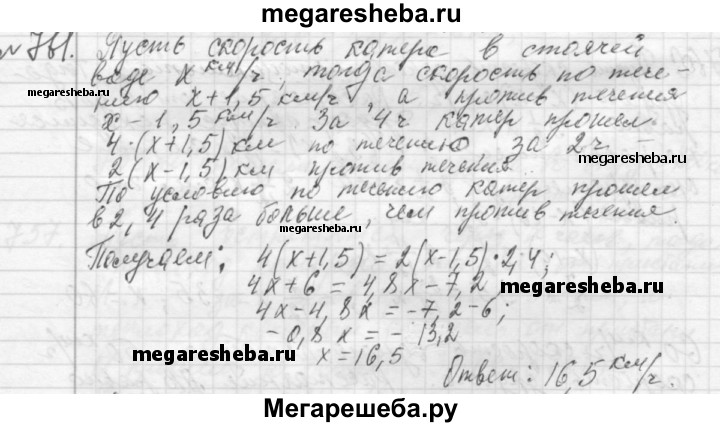 megaresheba.ru
№ 761. Пусть скорость катера в стоячей
воде x км/ч. тогда скорость по тече-
нию x+1,5 км/ч, а против течения
x-1,5 км/ч. За 4ч катер прошел
4·(x+1,5) км по течению за 2ч –
2(x-1,5) км против течения.
По условию по течению катер прошел
в 2,4 раза больше, чем против течения.
Получаем: 4(x+1,5) = 2(x-1,5)·2,4;
4x+6 = 4,8x-7,2 megaresheba.ru
4x-4,8x=-7,2-6;
megaresheba.ru -0,8x = -13,2
x=16,5
Ответ: 16,5 км/ч.
Мегарешеба.ру